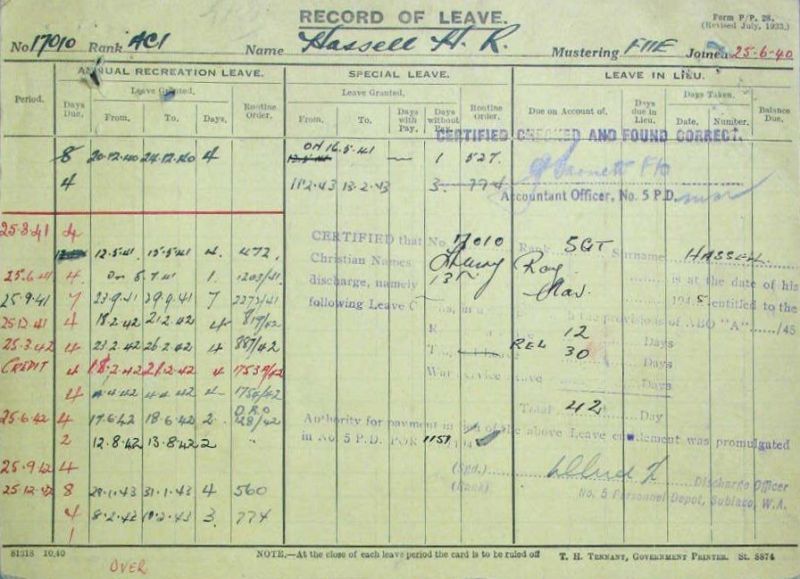 RECORD OF LEAVE.
Form P/P. 28.
(Revised July, 1933.)
No 17010 Rank AC1 Name Hassell H. R. Mustering FIIE Joined 25-6-40
ANNUAL RECREATION LEAVE. SPECIAL LEAVE. LEAVE IN LIEU.
Period. Days Due. Leave Granted. From. To. Days. Routine Order.
Leave Granted. From. To. Days with Pay. Days without Pay. Routine Order.
Due on Account of. Days due in Lieu. Days Taken. Date. Number. Balance Due.
CERTIFIED CHECKED AND FOUND CORRECT.
8 20.12.40 24.12.40 4 ON 16.5.41 — 1 527.
4 11.2.43 13.2.43 3. 774
Accountant Officer, No. 5 P.D.
25.3.41 4
12.5.41 15.5.41 4. 472.
25.6.41 4. On 8.7.41 1. 1203/41
25.9.41 7 23.9.41 29.9.41 7 2272/41
25.12.41 4 18.2.42 21.2.42 4 819/42
25.3.42 4 23.2.42 26.2.42 4 887/42
CREDIT 4 18.2.42 21.2.42 4 1753/42
4 4.42 4.42 4 1754/42
D.R.O
25.6.42 4 17.6.42 18.6.42 2. 128/42
2 12.8.42 13.8.42 2 "
25.9.42 4
25.12.42 8 28.1.43 31.1.43 4 560
4 8.2.43 10.2.43 3. 774
1
CERTIFIED that No. 17010 Rank SGT Surname HASSELL
Christian Names Henry Roy
discharge, namely 13th Nov. is at the date of his
following Leave 1945 entitled to the
the provisions of ABO "A" /45
12 Days
REL 30 Days
War Service Leave Days
Total 42 Day
Authority for payment in lieu of the above Leave entitlement was promulgated
in No. 5 P.D. POR 1157
(Sgd.)
(Rank) Discharge Officer
No. 5 Personnel Depot, Subiaco, W.A.
81218 10.40
OVER
NOTE.—At the close of each leave period the card is to be ruled off
T. H. TENNANT, GOVERNMENT PRINTER. SL. 8874